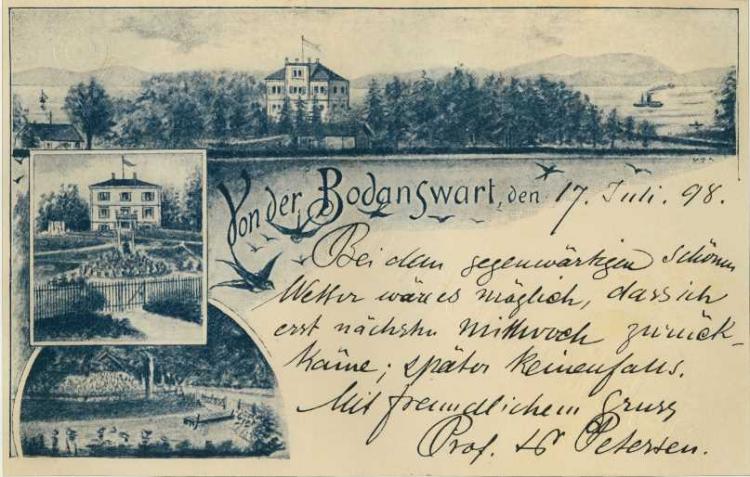 Von der Bodanswart, den 17. Juli. 98.
Bei dem gegenwärtigen schönen
Wetter wäre es möglich, dass ich
erst nächsten Mittwoch zurück-
käme; später keinenfalls.
Mit freundlichem Gruss
Prof. Petersen.